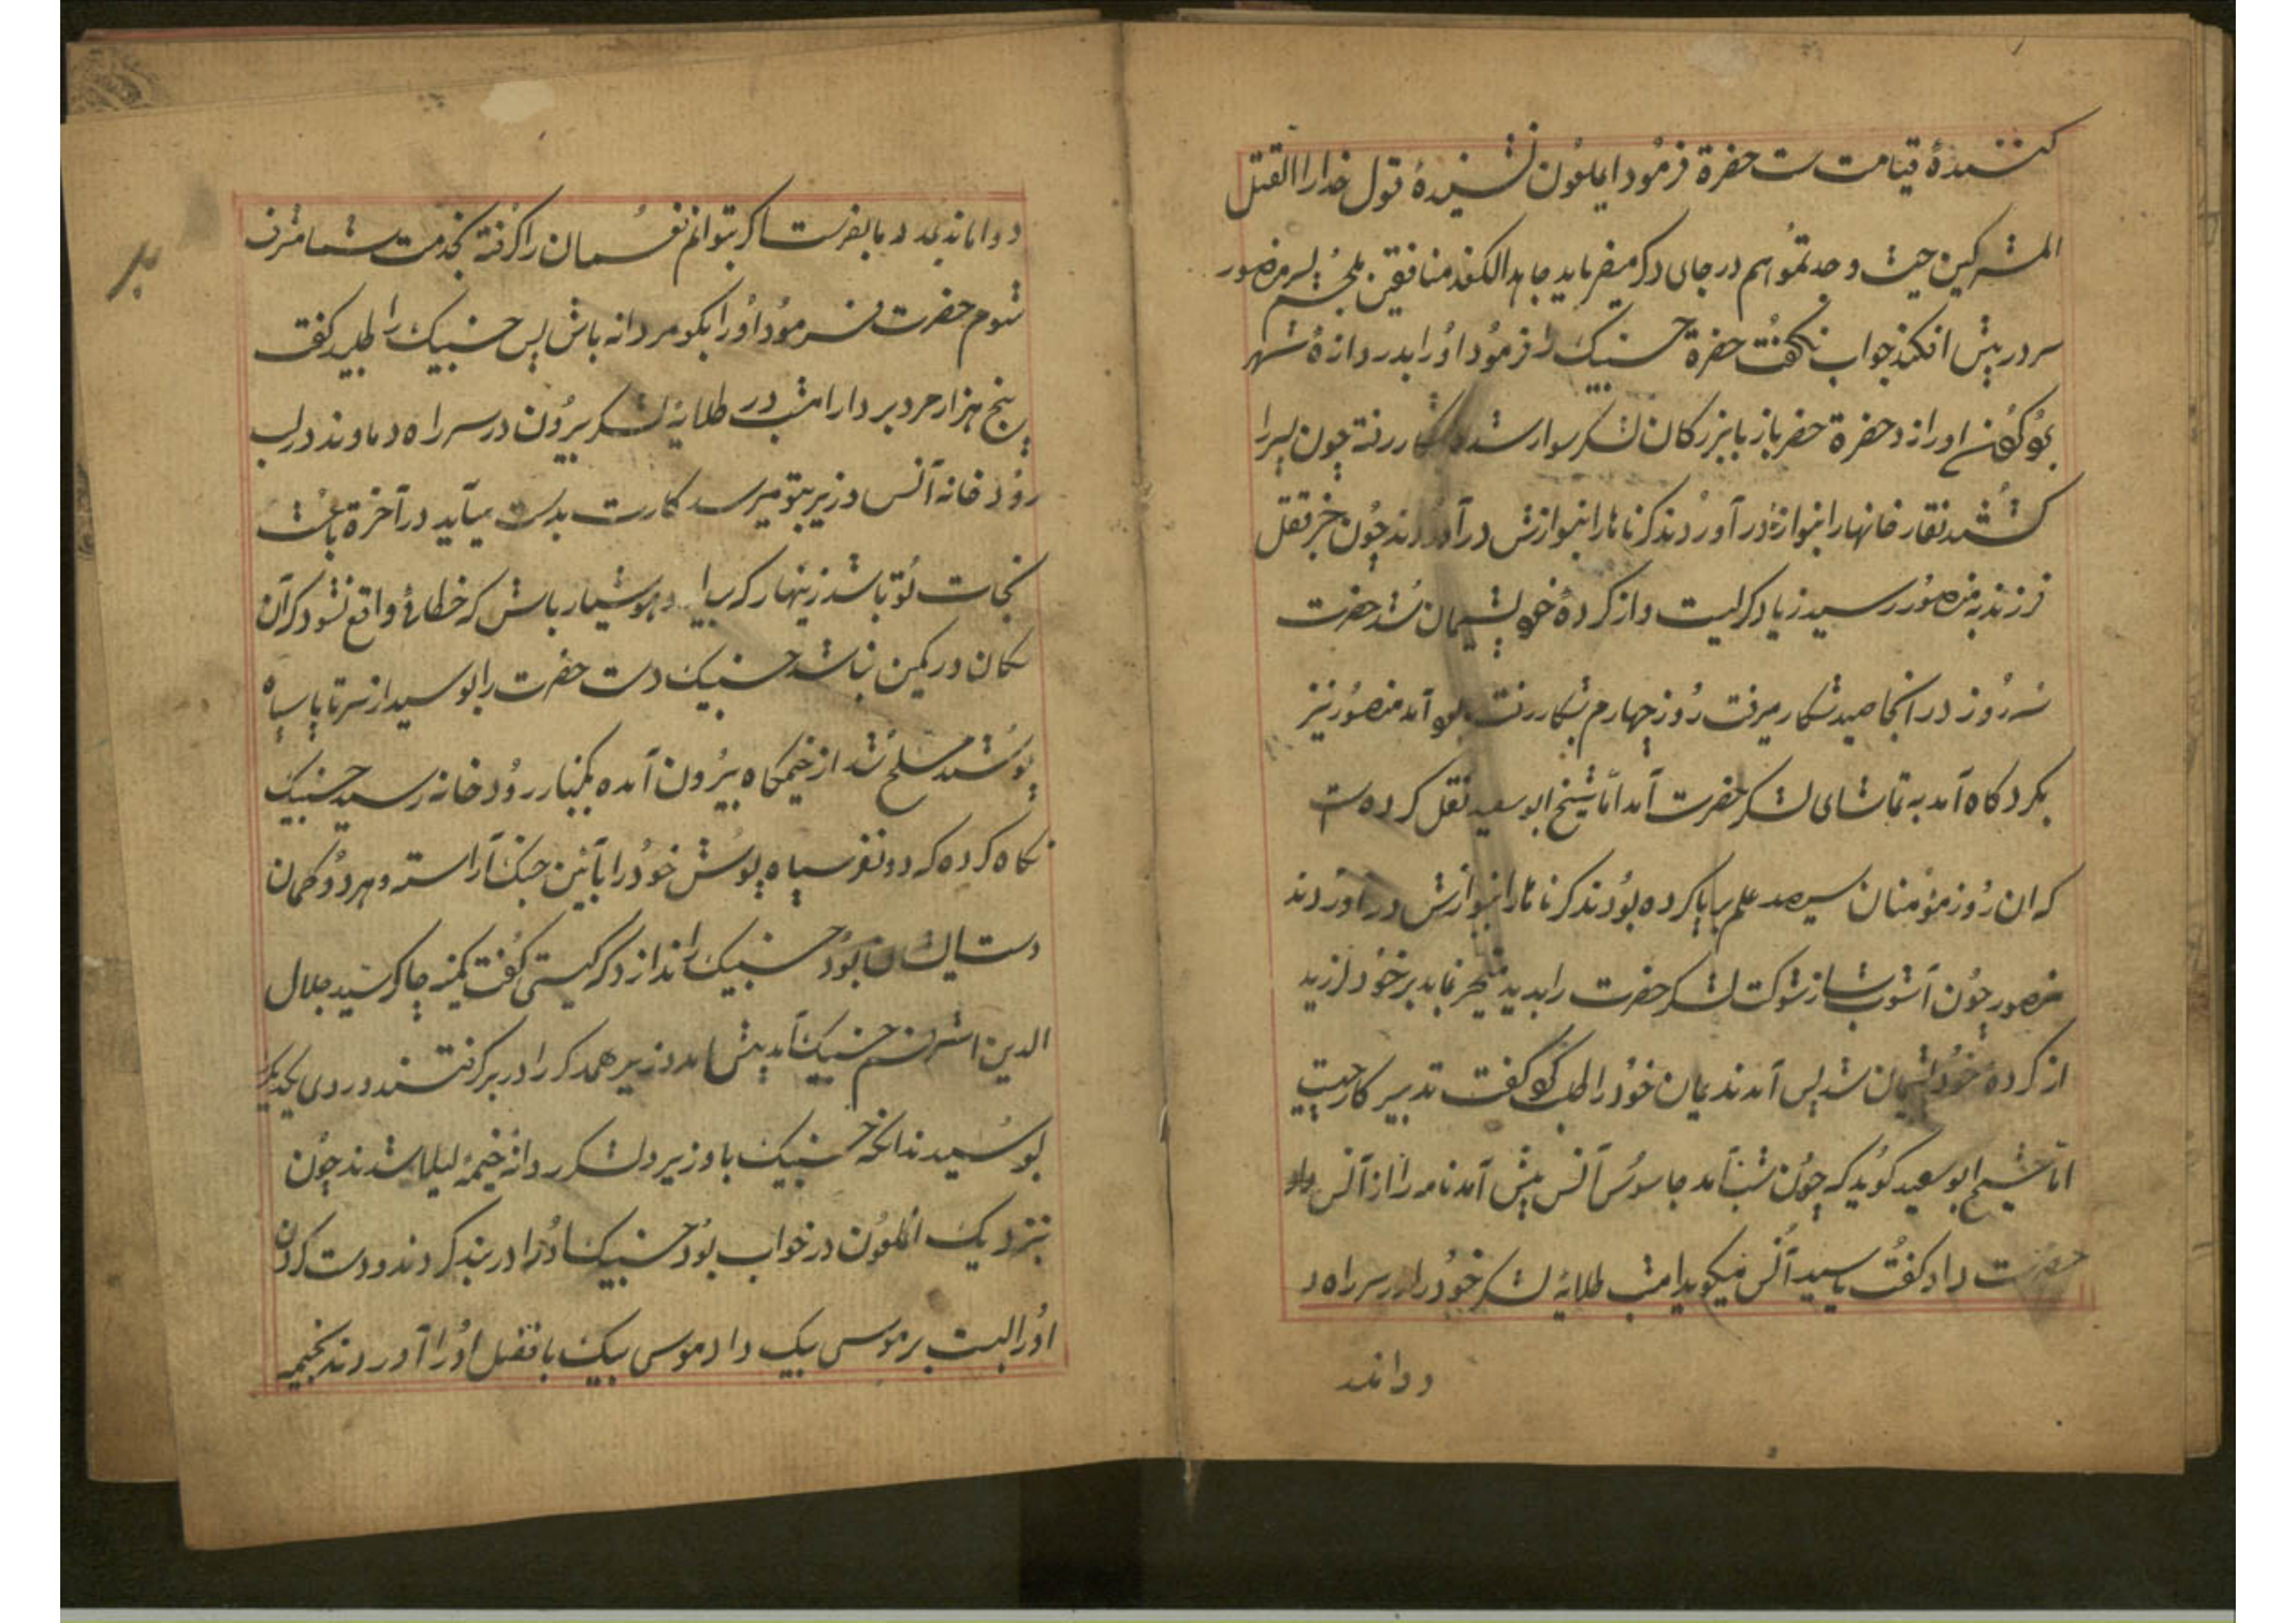 کنندهٔ قیامت ست حضرة فرمود ایملعون نشنیدهٔ قول خدا را اقتل
المشرکین حیث وجدتموهم در جای دکر میفرماید جاهد الکفد منافقین پسر منصور
سر در پیش افکند جواب نکفت حضرة حسنبیک را فرمود او را بدروازهٔ شهر
اورا زد حضرة خضر باز با بزرکان لشکر سوار شده بشکار رفته چون پسر را
کشتند نقاره خانها را بنوازهٔ در آوردند کرناها را بنوازش در آوردند چون خبر قتل
فرزند به منصور رسید زیاد کریست و از کردهٔ خود پشیمان شد حضرت
سه روز در انجا صید شکار میرفت روز چهارم بشکار رفت آمد منصور نیز
بکردکاه آمد به تماشای لشکر حضرت آمد امّا شیخ ابو سعید نقل کرده ست
که ان روز مؤمنان سیصد علم بر پا کرده بودند کرناها را بنوازش در آوردند
منصور چون آشوب شوکت لشکر حضرت را بدید متحیر بماند بر خود لرزید
از کردهٔ خود پشیمان شد پس آمد ندیمان خود را طلب کفت تدبیر کار چیست
امّا شیخ ابو سعید کوید که چون شب آمد جاسوس آنس پیش آمد نامه را از آنس
حضرت داد کفت یا سید آنس میکوید امشب طلایهٔ لشکر خود را در سر راه د
دواند
بفرست که بتوانم نفسمان را کرفته بخدمت شما مشرف
شوم حضرت فرمود او را بکو مردانه باش پس حسنبیک را طلبید کفت
پنج هزار مرد بردار امشب در طلایهٔ لشکر بیرون در سر راه دماوند در لب
رودخانه آنس وزیر بتو میرسد کارت بدست میآید در آخرة باعث
نجات تو باشد زینهار که هوشیار باش که خطائی واقع نشود که آن
سکان در کمین نباشد حسنبیک دست حضرت را بوسید از سر تا پا سیاه
پوشید مسلح شد از خیمکاه بیرون آمده بکنار رودخانه رسید حسنبیک
نکاه کرده که دو نفر سیاه پوش خود را بآئین جنک آراسته و هر دو کمان
دست ایشان بود حسنبیک را ندا زد که کیستی کفت کمینه چاکر سید جلال
الدین اشرفم حسنبیک آمد پیش آمد وزیر همدکر را در بر کرفتند و روی یکدیکر
بوسیدند انکه حسنبیک با وزیر و لشکر روانهٔ خیمهٔ لیلا شدند چون
نزدیک انملعون در خواب بود حسنبیک او را در بند کردند و دست کردن
او را ببست بر موسی بیک داد موسی بیک با قفل او را آوردند بخیمه